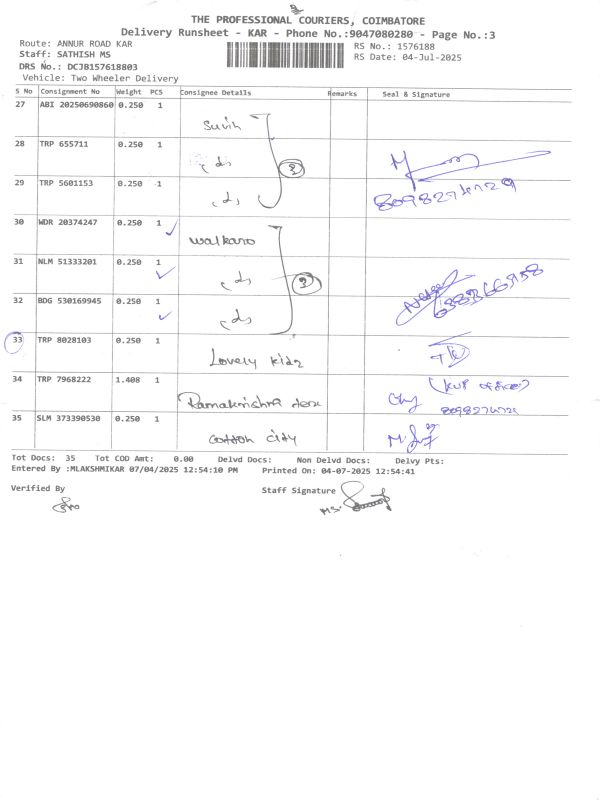 THE PROFESSIONAL COURIERS, COIMBATORE
Delivery Runsheet - KAR - Phone No.:9047080280 - Page No.:3
Route: ANNUR ROAD KAR
RS No.: 1576188
Staff: SATHISH MS
RS Date: 04-Jul-2025
DRS No.: DCJB157618803
Vehicle: Two Wheeler Delivery
S No Consignment No Weight PCS Consignee Details Remarks Seal & Signature
27 ABI 20250690860 0.250 1
28 TRP 655711 0.250 1
29 TRP 5601153 0.250 1
30 WDR 20374247 0.250 1 walkaro
31 NLM 51333201 0.250 1
32 BDG 530169945 0.250 1
33 TRP 8028103 0.250 1 Lovely kidz
34 TRP 7968222 1.408 1 Ramakrishna
35 SLM 373390530 0.250 1 cotton city
Tot Docs: 35 Tot COD Amt: 0.00 Delvd Docs: Non Delvd Docs: Delvy Pts:
Entered By :MLAKSHMIKAR 07/04/2025 12:54:10 PM Printed On: 04-07-2025 12:54:41
Verified By
Staff Signature